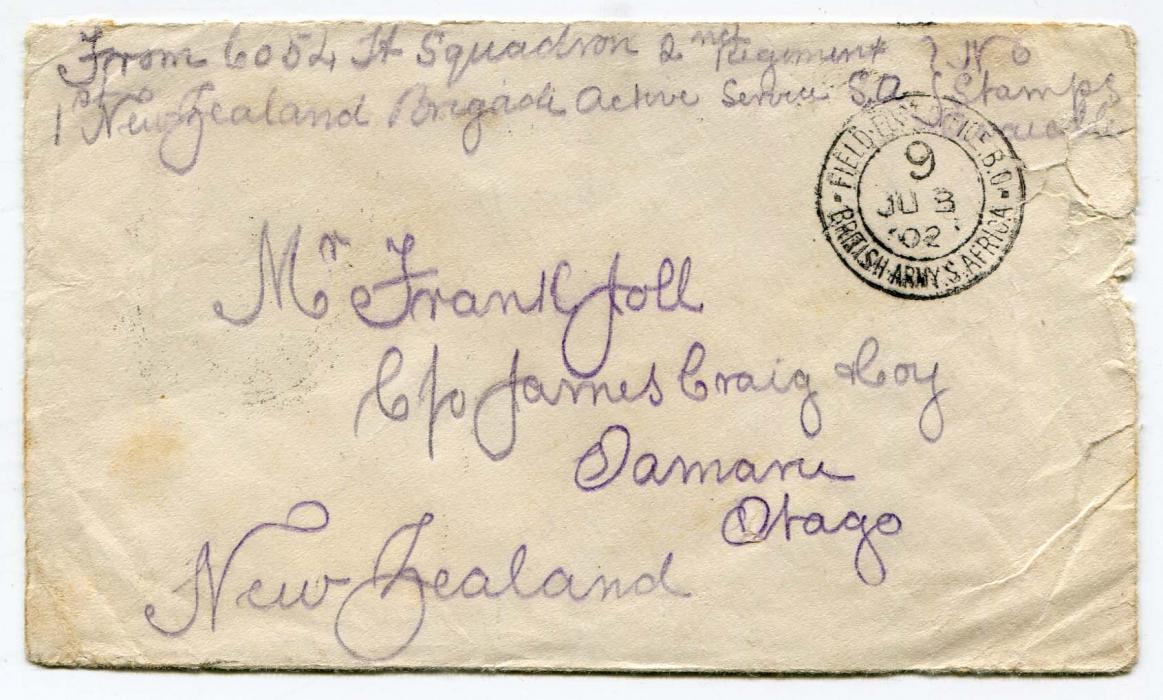 From 6054 H Squadron 2nd Regiment } No
1st New Zealand Brigade Active Service S.A. { Stamps
FIELD POST OFFICE. B.O.
9
JU 3
02
BRITISH ARMY. S. AFRICA
Mr Frank Joll
C/o James Craig & Coy
Oamaru
Otago
New Zealand